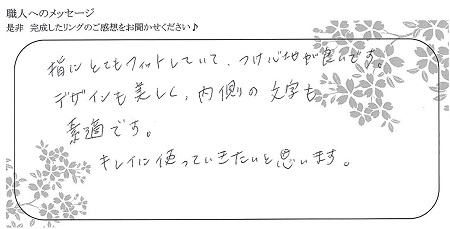 職人へのメッセージ
是非 完成したリングのご感想をお聞かせください♪
指にとてもフィットしていて、つけ心地が良いです。
デザインも美しく、内側の文字も
素適です。
キレイに使っていきたいと思います。